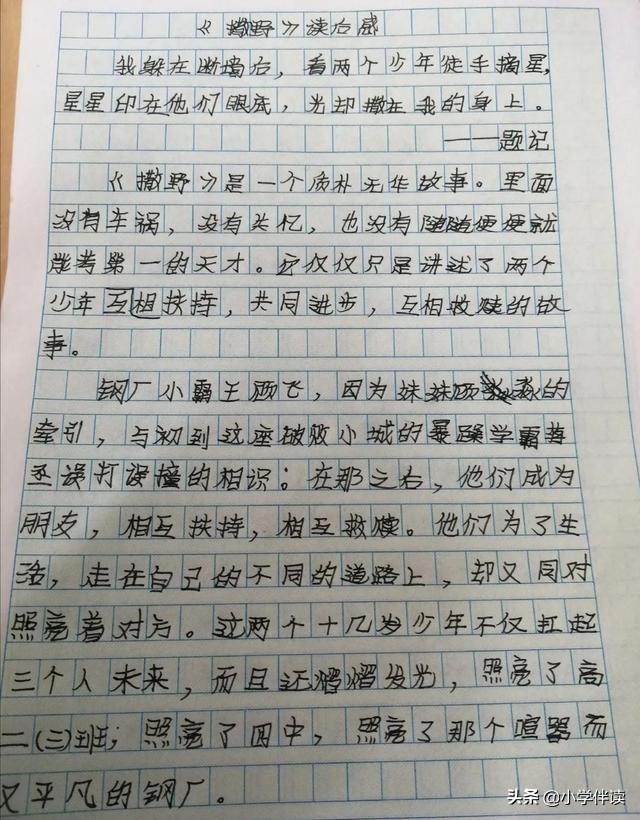 《撒野》读后感
我躲在断墙后，看两个少年徒手摘星，
星星印在他们眼底，光却撒在我的身上。
——题记
《撒野》是一个质朴无华故事。里面
没有车祸，没有失忆，也没有随随便便就
能考第一的天才。它仅仅只是讲述了两个
少年互相扶持，共同进步，互相救赎的故
事。
钢厂小霸王顾飞，因为妹妹顾淼的
牵引，与初到这座破败小城的暴躁学霸蒋
丞误打误撞的相识；在那之后，他们成为
朋友，相互扶持，相互救赎。他们为了生
活，走在自己的不同的道路上，却又同时
照亮着对方。这两个十几岁少年不仅扛起
三个人未来，而且还熠熠发光，照亮了高
二(三)班；照亮了四中，照亮了那个喧嚣而
又平凡的钢厂。
头条 @小学伴读